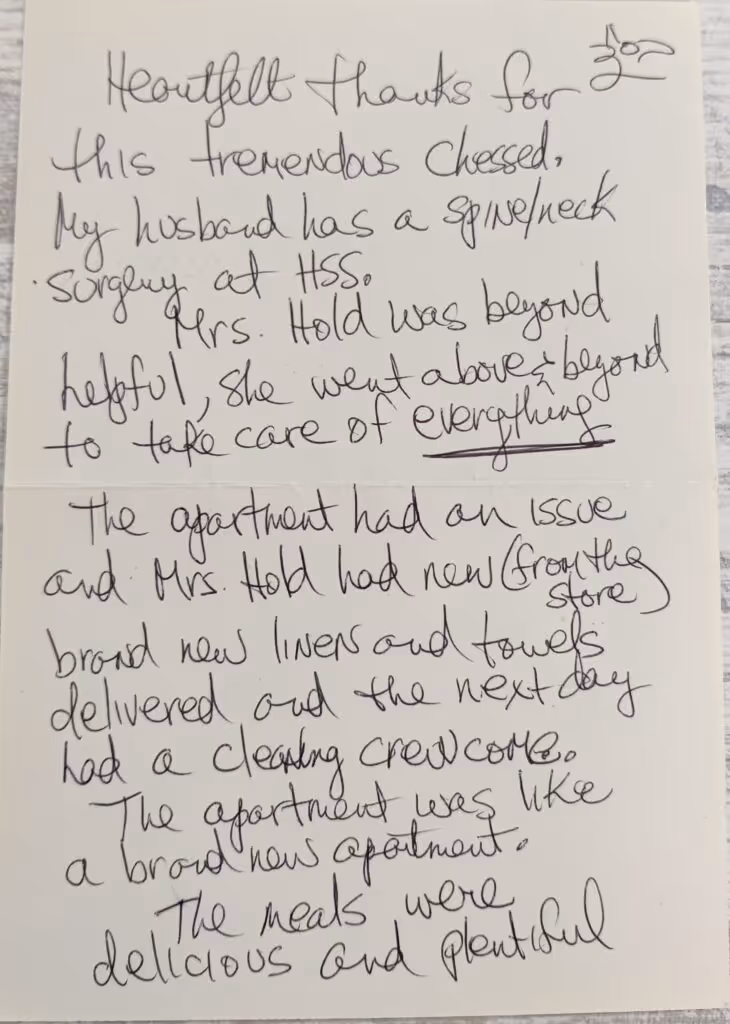 Heartfelt thanks for
this tremendous Chessed.
My husband has a spine/neck
surgery at HSS.
Mrs. Hold was beyond
helpful, she went above & beyond
to take care of everything
The apartment had an issue
and Mrs. Hold had new (from the
store)
brand new linen and towels
delivered and the next day
had a cleaning crew come.
The apartment was like
a brand new apartment.
The meals were
delicious and plentiful